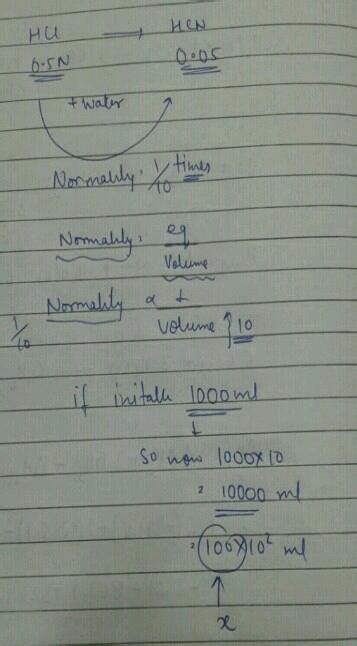 HCl → HCN
0.5N 0.05
+ water
Normality: 1/10 times
Normality: eq
Volume
Normality α 1
1/10 Volume ↑ } 10
if initally 1000 ml
↓
So now 1000×10
= 10000 ml
= 100×10² ml
↑
x